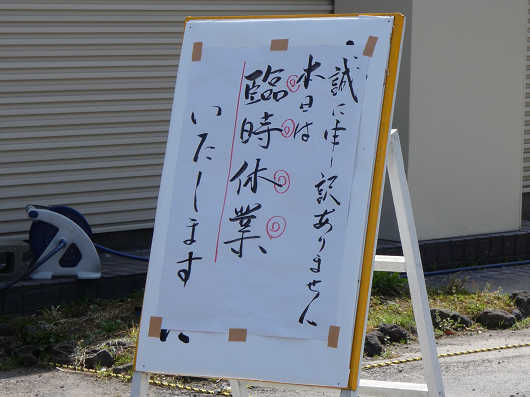 誠に申し訳ありません
本日は
臨時休業
いたします